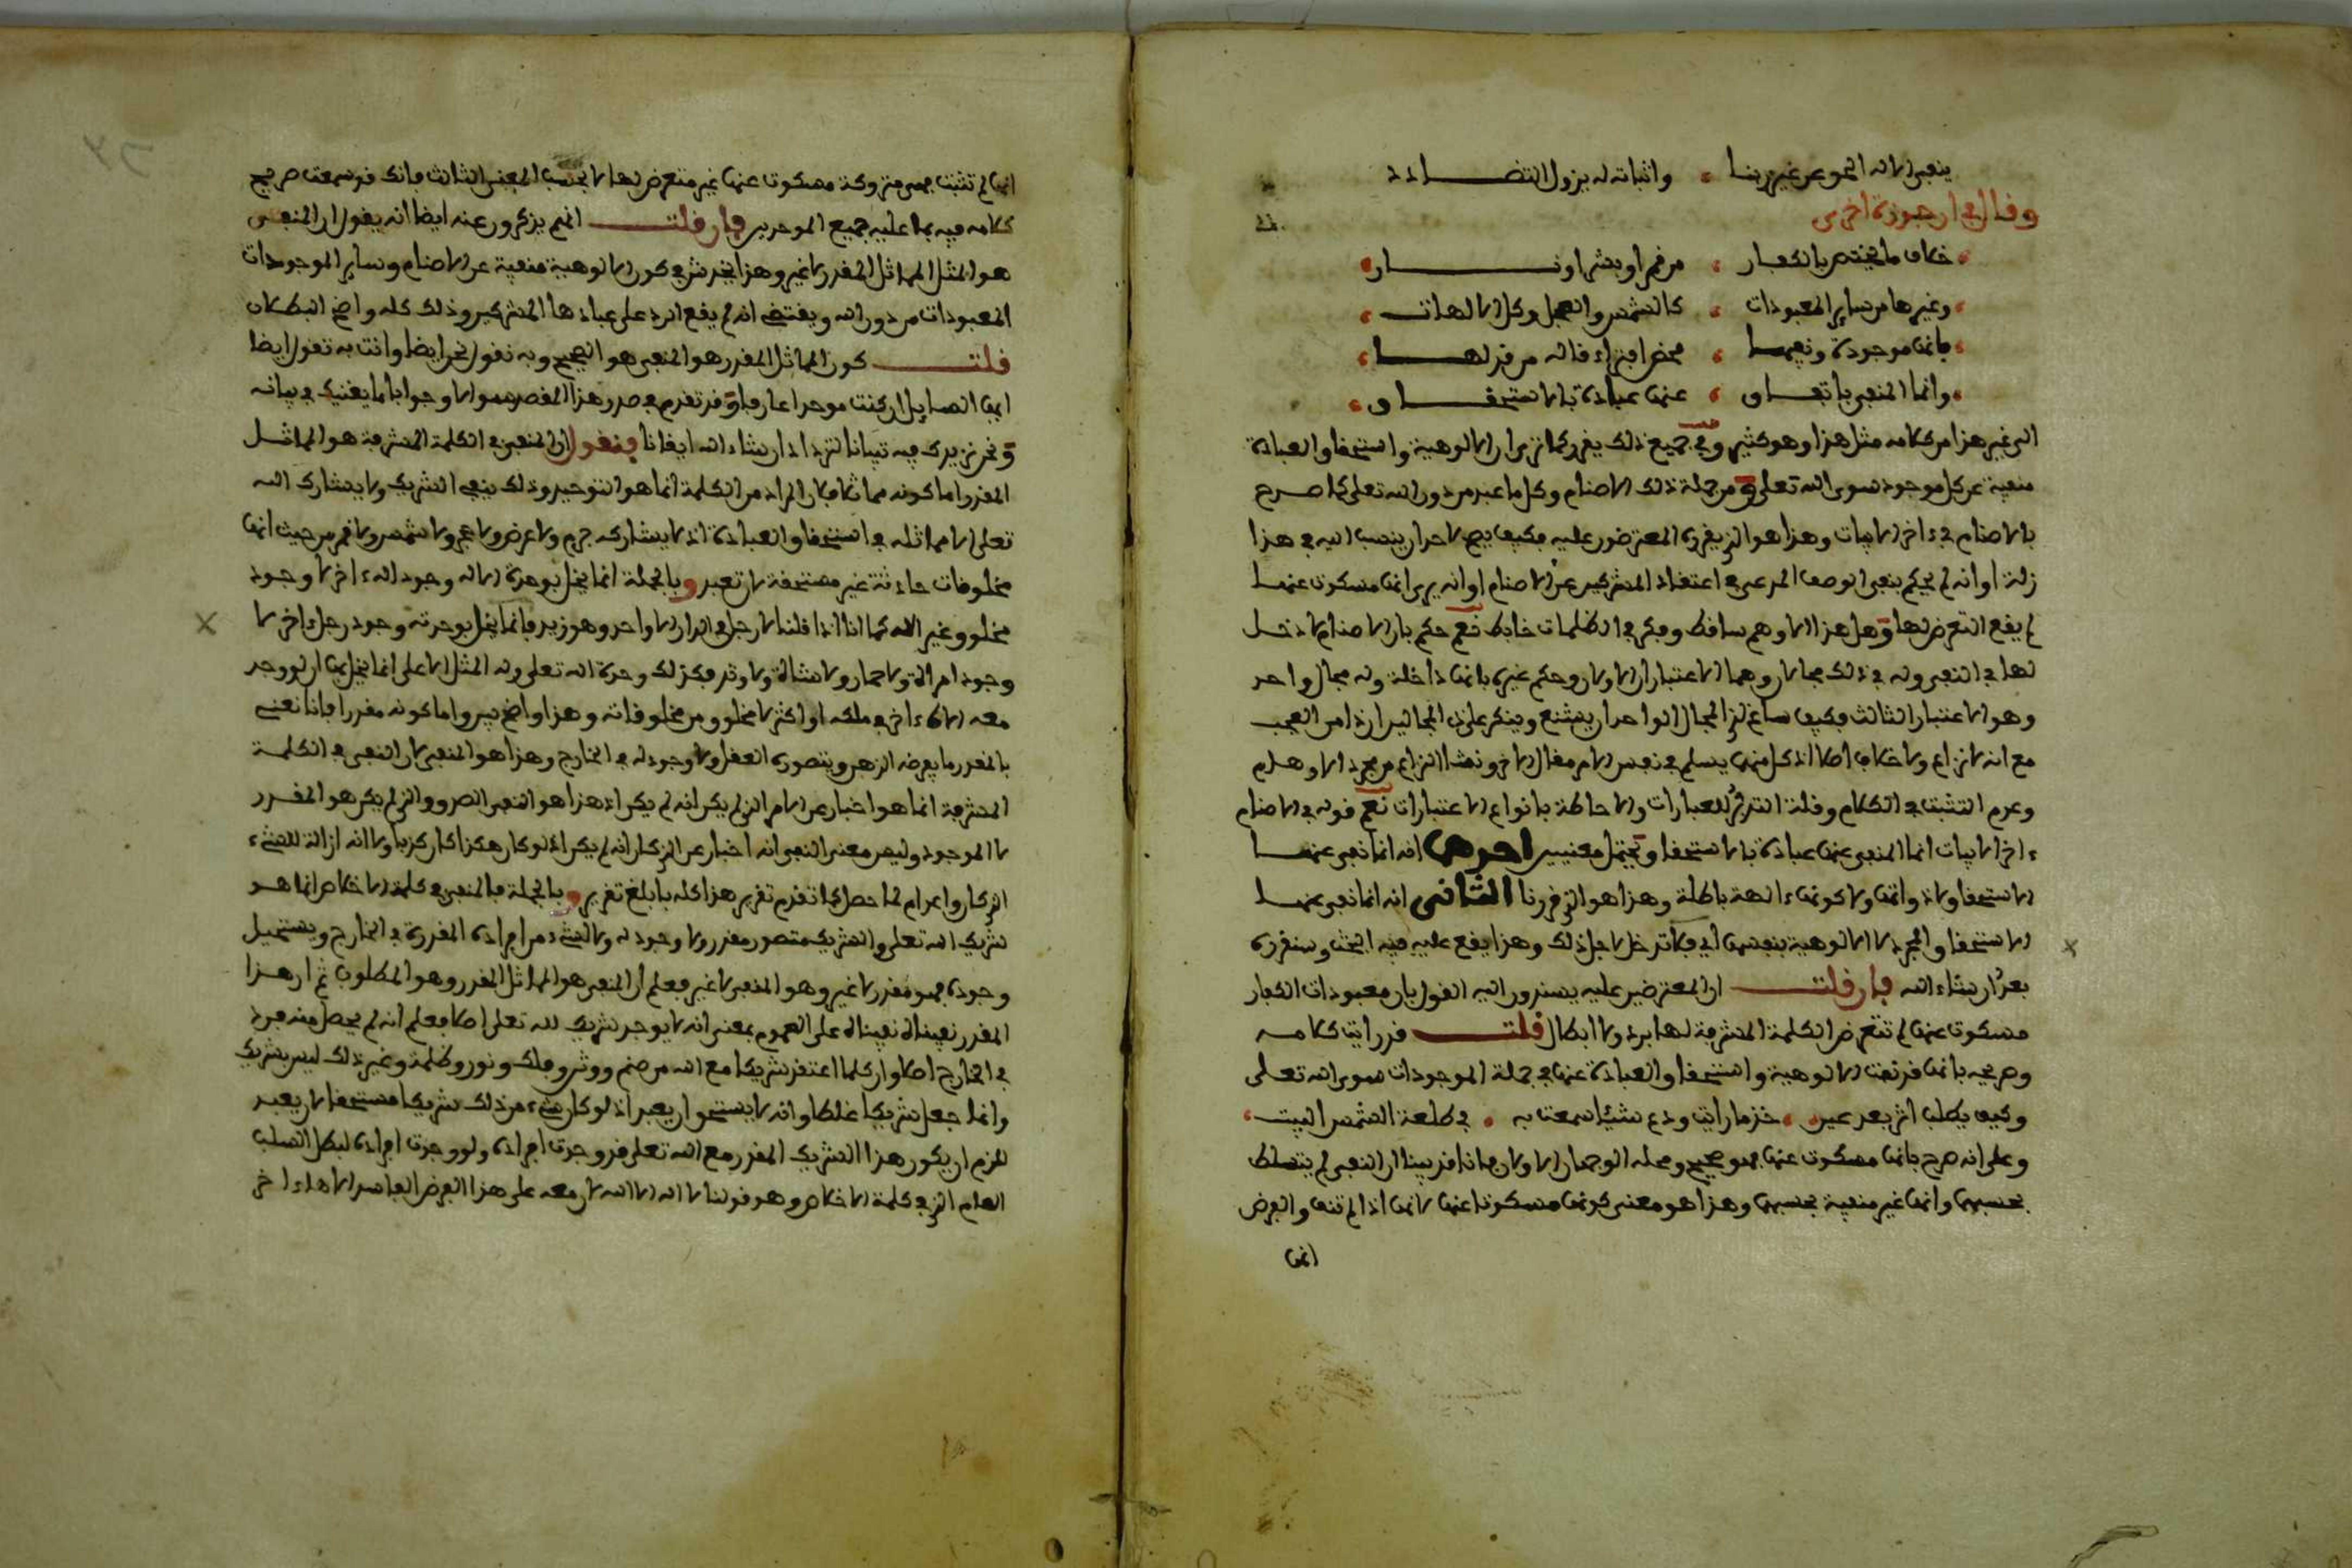 ينفي الاله الحق عن غير ربنا • واثباته له يزول التضادد
وقال في ارجوزة اخرى
خلاف ما يختص بالكفار • من قمر او بشر او نار
وغيرها من ساير المعبودات • كالشمس والعجل وكل الالهات
بانها موجودة ونفيها • محض افتراء قاله من فدلها
وانما المنفي باتفاق • عنها عبادة بالاستحقاق
الى غير هذا من كلامه مثل هذا وهو كثير وفي جميع ذلك يقرر كما ترى ان الالوهية واستحقاق العبادة
منفية عن كل موجود سوى الله تعلى ومن جملة ذلك الاصنام وكل ما عبد من دون الله تعلى كما صرح
بالاصنام في ءاخر الابيات وهذا هو الذي يقرره المعترضون عليه فكيف يصح لاحد ان ينسب اليه في هذا
زلة او انه لم يحكم بنفي الوصف المدعى في اعتقاد المشركين عن الاصنام او انه يرى انها مسكوت عنها
لم يقع التعرض لها وهل هذا الا وهم ساقط وفكر في الظلمات خابط نعم حكم بان الاصنام لا دخل
لها في النفي وله في ذلك مجالان وهما الاعتباران الاولان وحكم غيره بانها داخلة وله مجال واحد
وهو الاعتبار الثالث فكيف ساغ لذي المجال الواحد ان يشنع وينكر على ذي المجالين ان ذا من العجب
مع انه لا نزاع ولا خلاف اصلا اذ كل منهما يسلم في نفس الامر مقال الاخر ومنشا النزاع من مجرد الاوهام
وعدم التثبت في الكلام وقلة التدبر للعبارات والاحاطة بانواع الاعتبارات نعم قوله في الاصنام
ءاخر الابيات انما المنفي عنها عبادة بالاستحقاق يحتمل معنيين احدهما انه انما نفي عنها
الاستحقاق لا ذواتها ولا كونها ءالهة باطلة وهذا هو الذي قررنا الثاني انه انما نفي عنها
الاستحقاق المجرد لا الالوهية بنفسها اي فلا تدخل لاجل ذلك وهذا يقع عليه فيه البحث وسنقرره
بعد ان شاء الله فان قلت ان المعترضين عليه يسندون اليه القول بان معبودات الكفار
مسكوت عنها لم تتعرض الكلمة المشرفة لها برد ولا ابطال قلت قد رايت كلامه
وصرحه بانها قد نفت الالوهية واستحقاق العبادة عنها في جملة الموجودات سوى الله تعلى
وكيف يطلب اثر بعد عين • خذ ما رايت ودع شيئا سمعت به • في طلعة الشمس البيت
وعلى انه صرح بانها مسكوت عنها فهو صحيح ومحله الوجهان الاولان فانا قد بينا ان النفي لم يتسلط
بحسبهما وانها غير منفية بحسبهما وهذا هو معنى كونها مسكوتا عنها لانها اذا لم تنف والفرض
انها
انها لم تثبت فهي متروكة مسكوت عنها غير متعرض لها لا بحسب المعنى الثالث فانك قد سمعت صريح
كلامه فيه بما عليه جميع الموحدين فان قلت انهم يذكرون عنه ايضا انه يقول ان المنفي
هو المثل المماثل المقدر لا غير وهذا يخدش في كون الالوهية منفية عن الاصنام وساير الموجودات
المعبودات من دون الله ويقتضي انه لم يقع الرد على عبادها المشركين وذلك كله واضح البطلان
قلت كون المماثل المقدر هو المنفي هو الصحيح وبه نقول نحن ايضا وانت به تقول ايضا
ايها السايل ان كنت موحدا عارفا وقد تقدم في صدر هذا المقصد سوالا وجوابا ما يغنيك في بيانه
ونحن نزيدك فيه تبيانا لتزداد ان شاء الله ايقانا فنقول ان المنفي في الكلمة المشرفة هو المماثل
المقدر اما كونه مماثلا فلان المراد من الكلمة انما هو التوحيد وذلك بنفي الشريك ولا يشارك الله
تعلى الا مماثله في استحقاق العبادة اذ لا يشاركه جرم ولا عرض ولا حجر ولا شمس ولا قمر من حيث انها
مخلوقات حادثة غير مستحقة لان تعبد وبالجملة انما يخل بوحدة الاله وجود اله ءاخر لا وجود
مخلوق غير اله كما انا اذا قلنا لا رجل في الدار الا واحد وهو زيد فانما يخل بوحدته وجود رجل ءاخر لا
وجود امراة ولا حمار ولا شاة ولا وتد فكذلك وحدة الله تعلى وله المثل الاعلى انما يخل بها ان لو وجد
معه الاه ءاخر في ملكه او اكثر لا مخلوق من مخلوقاته وهذا واضح بين واما كونه مقدرا فانا نعني
بالمقدر ما يفرضه الذهن ويتصوره العقل ولا وجود له في الخارج وهذا هو المنفي لان النفي في الكلمة
المشرفة انما هو اخبار عن الامر الذي لم يكن انه لم يكن اذ هذا هو النفي الصدق والذي لم يكن هو المقدر
لا الموجود وليس معنى النفي انه اخبار عن الذي كان انه لم يكن اذ لو كان هكذا كان كذبا ولا انه ازالة للشيء
الذي كان واعدام لما حصل كما تقدم تقرير هذا كله بابلغ تقرير وبالجملة فالمنفي في كلمة الاخلاص انما هو
شريك الله تعلى والشريك متصور مقدر ولا وجود له ولا لشيء من افراده المقدرة في الخارج ويستحيل
وجوده فهو مقدر لا غير وهو المنفي لا غير فعلم ان المنفي هو المماثل المقدر وهو المطلوب ثم ان هذا
المقدر نفيناه نفيناه على العموم بمعنى انه لا يوجد شريك لله تعلى اصلا فعلم انه لم يحصل منه فرد
في الخارج اصلا وان كلما اعتقد شريكا مع الله من صنم ووثن وملك ونور وظلمة وغير ذلك ليس بشريك
وانما جعل شريكا غلطا وانه لا يستحق ان يعبد اذ لو كان شيء من ذلك شريكا مستحقا لان يعبد
للزم ان يكون هذا الشريك المقدر مع الله تعلى قد وجدت افراده ولو وجدت افراده لبطل السلب
العام الذي في كلمة الاخلاص وهو قولنا لا اله الا الله لان معه على هذا الفرض الفاسد الاها ءاخر